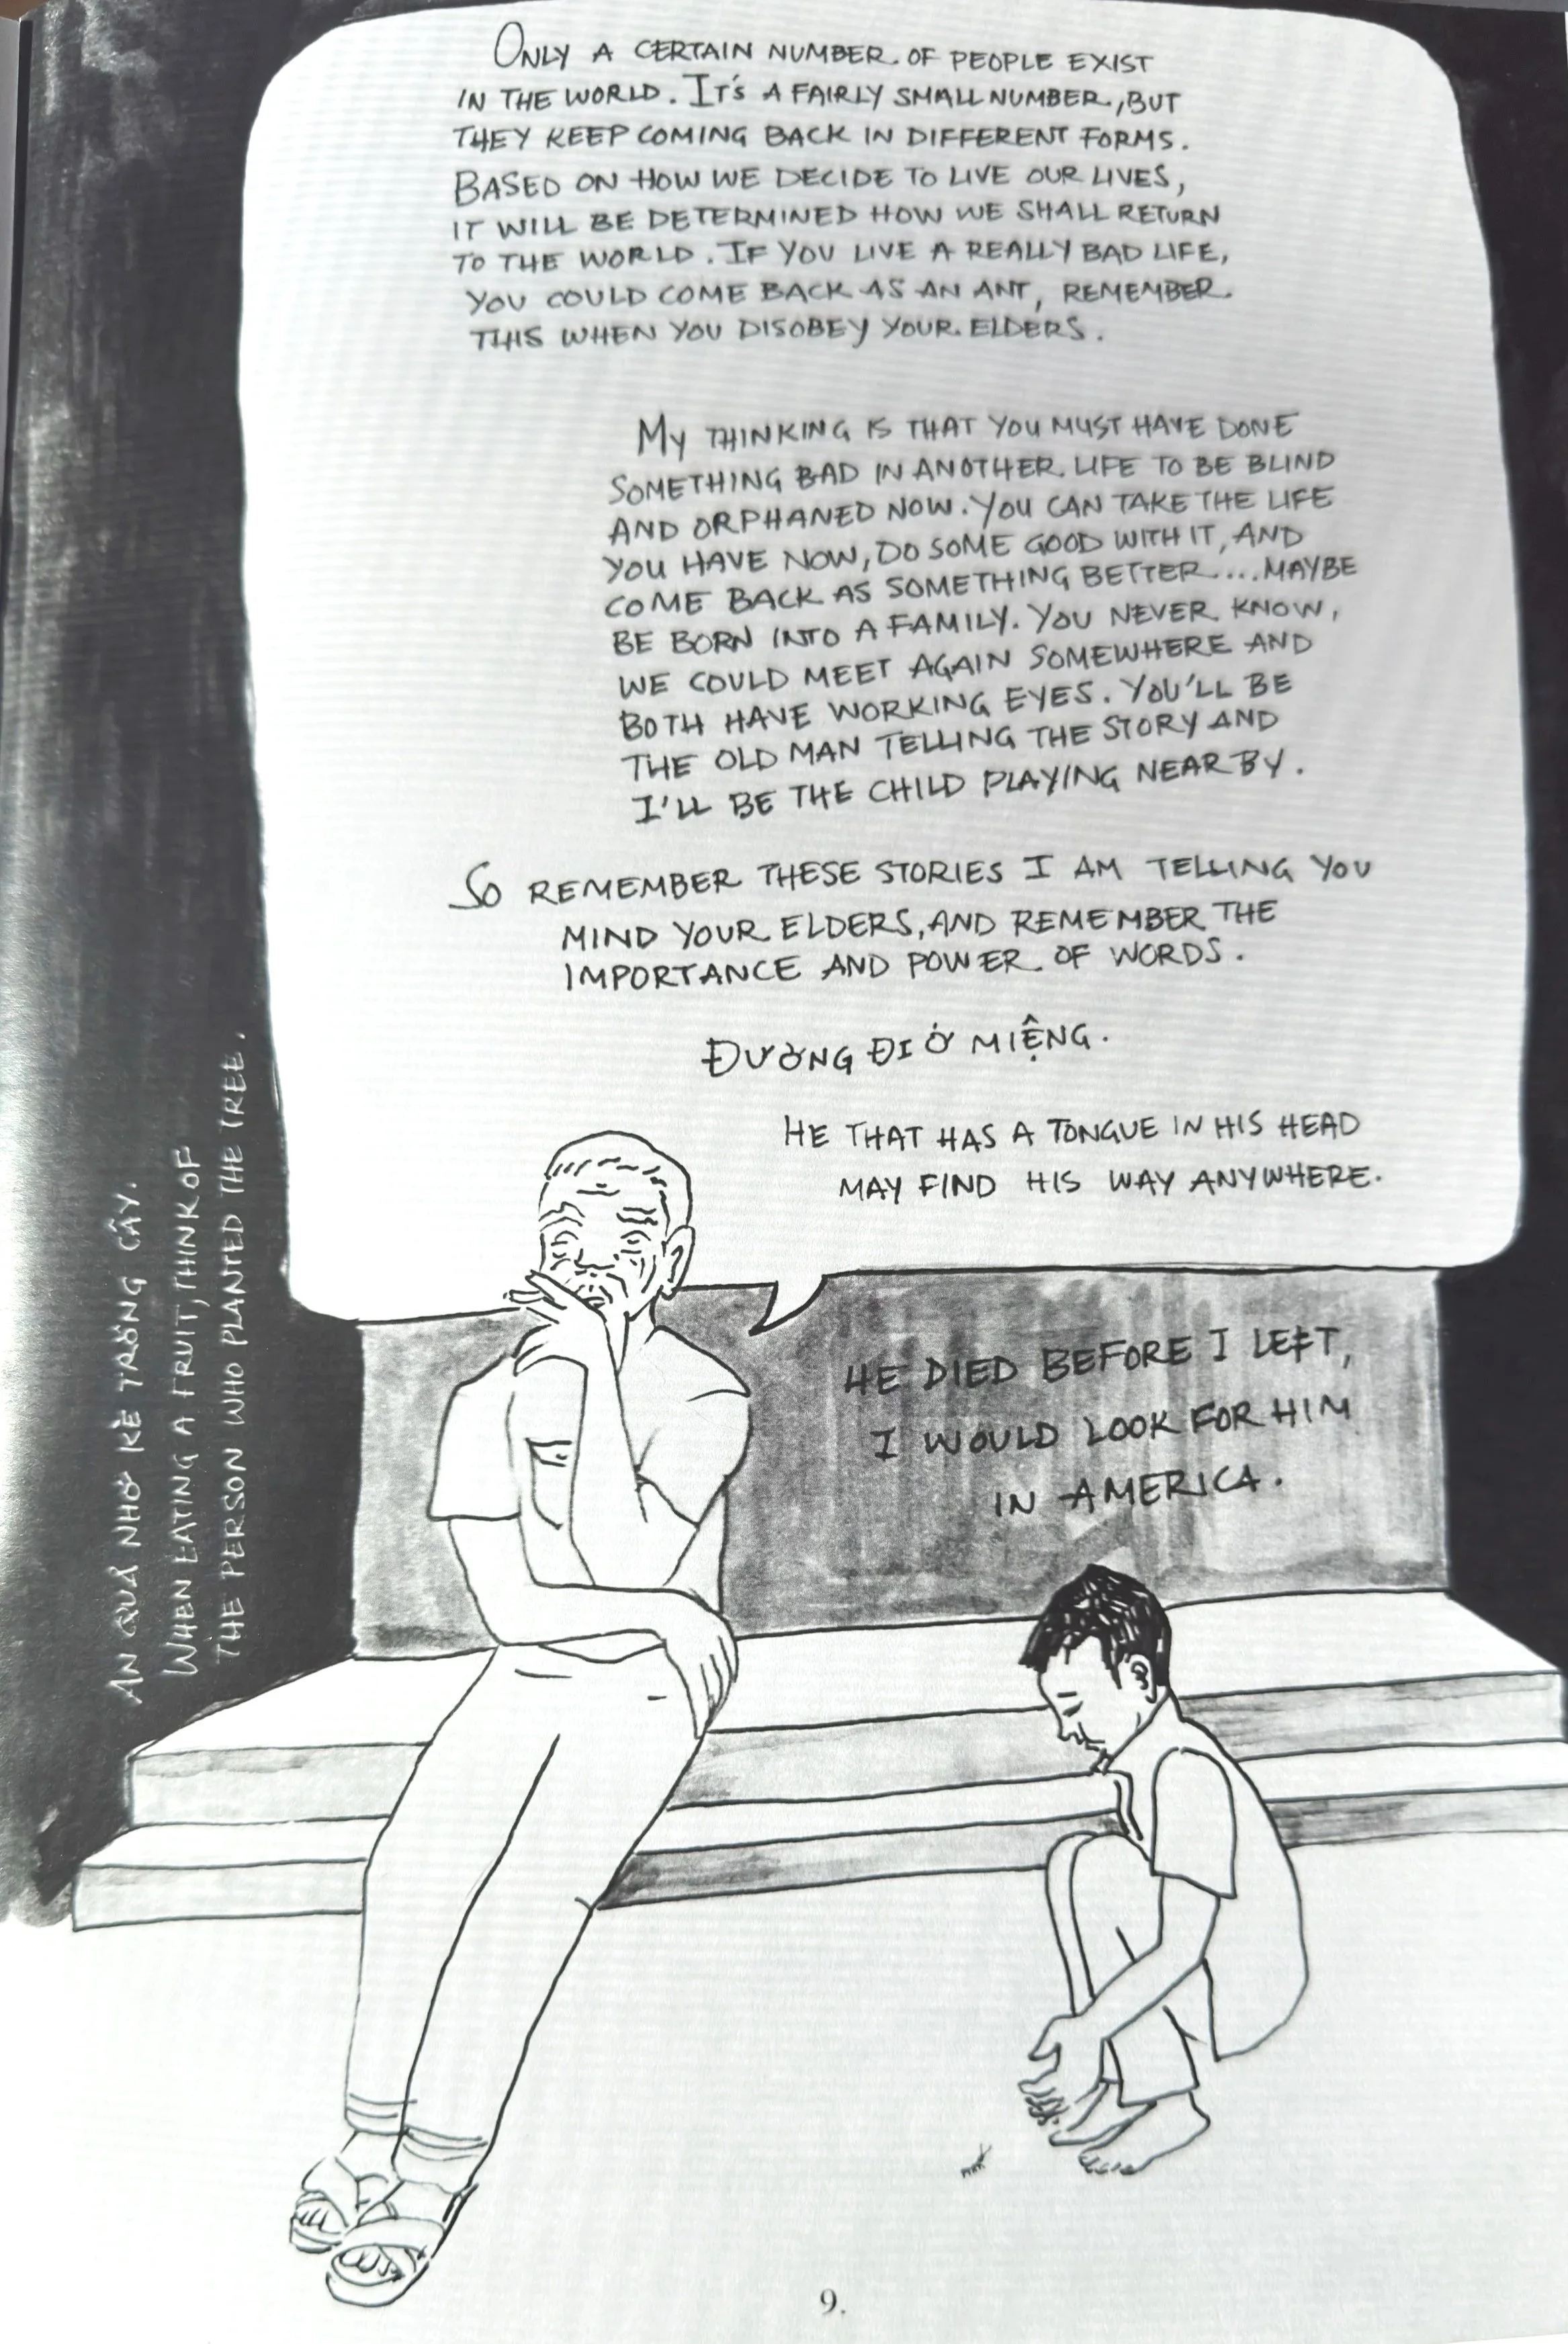 ONLY A CERTAIN NUMBER OF PEOPLE EXIST
IN THE WORLD. IT'S A FAIRLY SMALL NUMBER, BUT
THEY KEEP COMING BACK IN DIFFERENT FORMS.
BASED ON HOW WE DECIDE TO LIVE OUR LIVES,
IT WILL BE DETERMINED HOW WE SHALL RETURN
TO THE WORLD. IF YOU LIVE A REALLY BAD LIFE,
YOU COULD COME BACK AS AN ANT, REMEMBER
THIS WHEN YOU DISOBEY YOUR ELDERS.
MY THINKING IS THAT YOU MUST HAVE DONE
SOMETHING BAD IN ANOTHER LIFE TO BE BLIND
AND ORPHANED NOW. YOU CAN TAKE THE LIFE
YOU HAVE NOW, DO SOME GOOD WITH IT, AND
COME BACK AS SOMETHING BETTER....MAYBE
BE BORN INTO A FAMILY. YOU NEVER KNOW,
WE COULD MEET AGAIN SOMEWHERE AND
BOTH HAVE WORKING EYES. YOU'LL BE
THE OLD MAN TELLING THE STORY AND
I'LL BE THE CHILD PLAYING NEARBY.
SO REMEMBER THESE STORIES I AM TELLING YOU
MIND YOUR ELDERS, AND REMEMBER THE
IMPORTANCE AND POWER OF WORDS.
ĐƯỜNG ĐI Ở MIỆNG.
HE THAT HAS A TONGUE IN HIS HEAD
MAY FIND HIS WAY ANYWHERE.
HE DIED BEFORE I LEFT,
I WOULD LOOK FOR HIM
IN AMERICA.
AN QUẢ NHỚ KẺ TRỒNG CÂY.
WHEN EATING A FRUIT, THINK OF
THE PERSON WHO PLANTED THE TREE.
9.